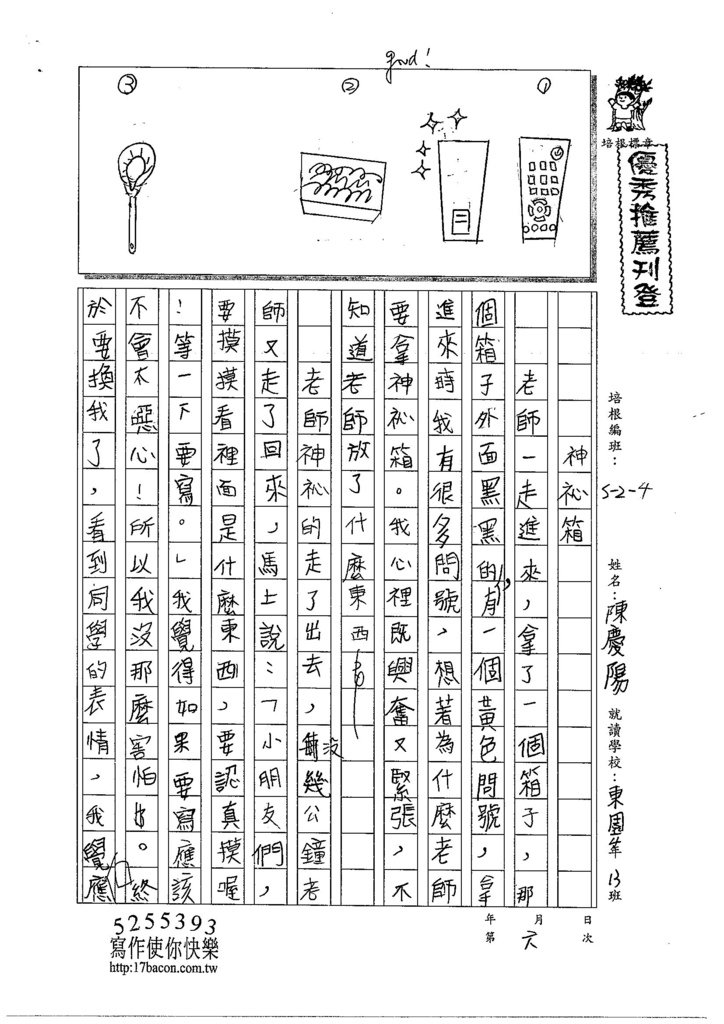 good!
① ② ③
培根標章
優秀推薦刊登
培根編班：5-2-4
姓名：陳慶陽
就讀學校：東園 年 13 班
神祕箱
老師一走進來，拿了一個箱子，那
個箱子外面黑黑的，有一個黃色問號，拿
進來時我有很多問號，想著為什麼老師
要拿神祕箱。我心裡既興奮又緊張，不
知道老師放了什麼東西
老師神祕的走了出去，沒幾公鐘老
師又走了回來，馬上說：「小朋友們，
要摸摸看裡面是什麼東西，要認真摸喔
！等一下要寫。」我覺得如果要寫應該
不會太噁心！所以我沒那麼害怕。終
於要換我了，看到同學的表情，我覺應
年 月 日
第 六 次
5255393
寫作使你快樂
http:17bacon.com.tw